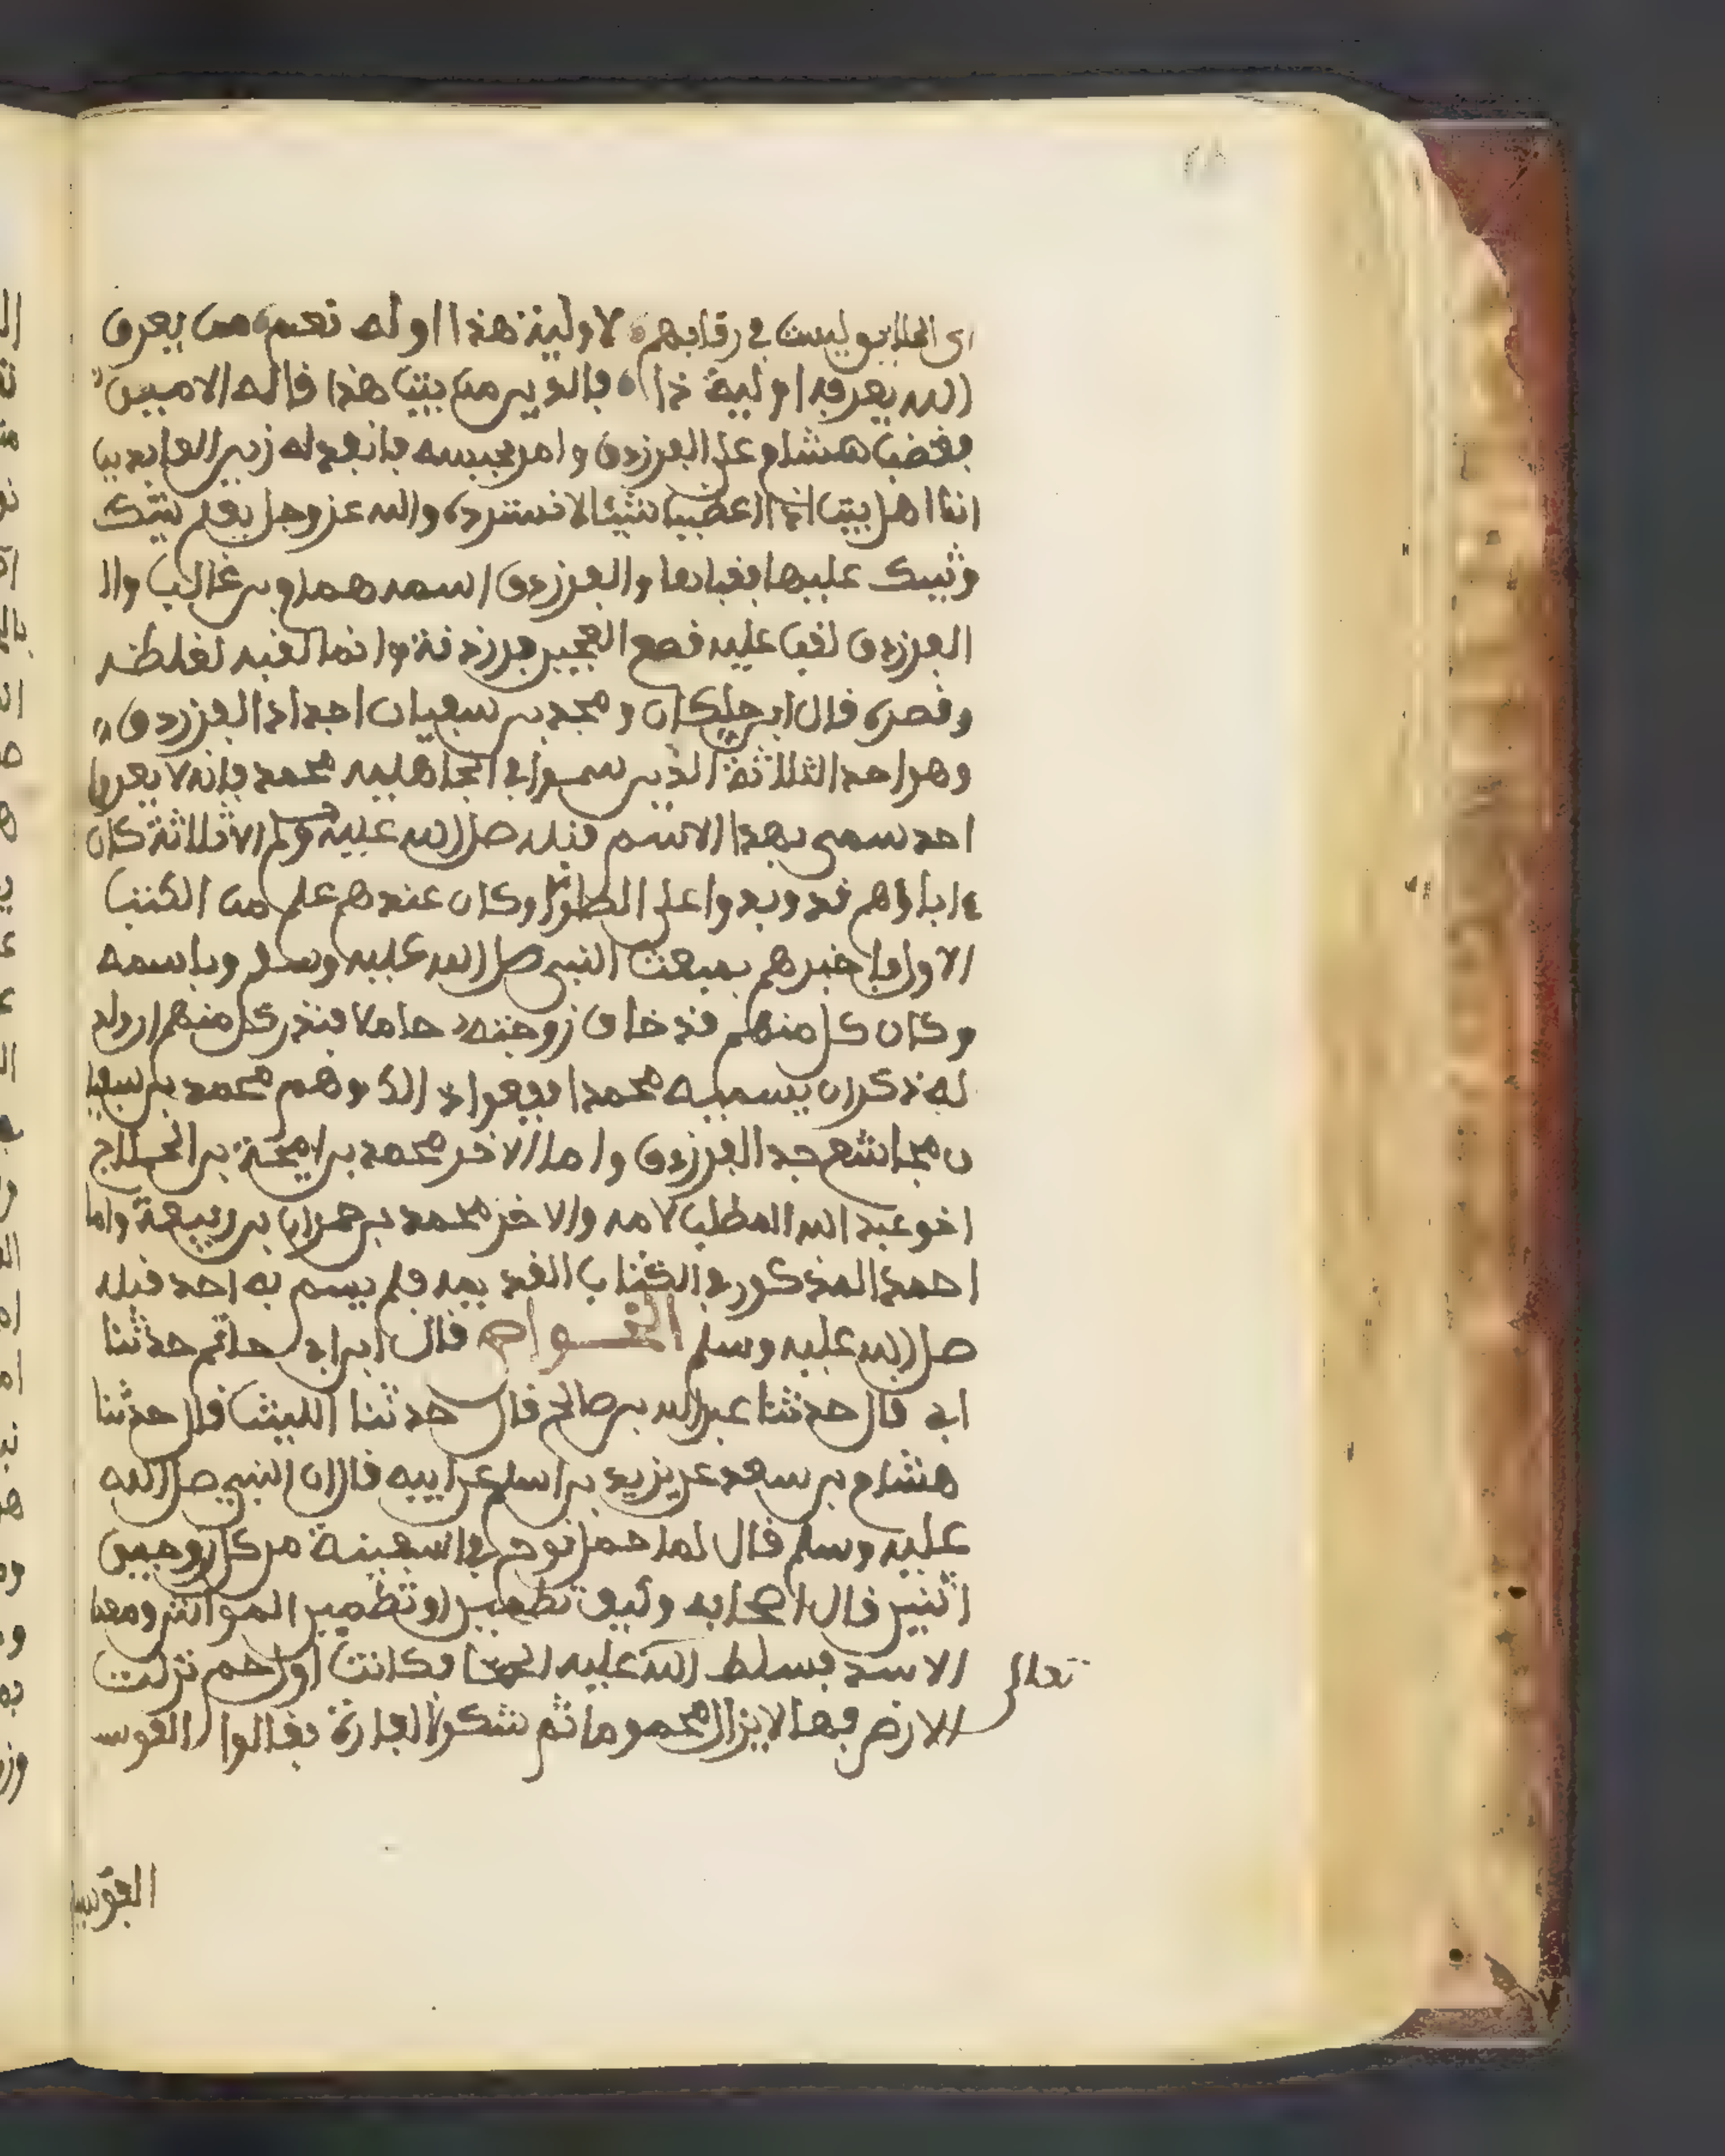 اى الخلايق ليست في رقابهم لاولية هذا اوله نعم من يعرف
الله يعرف اولية ذا فالدين من بيت هذا ناله الامم
فغضب هشام على الفرزدق وامر بحبسه فانفد له زين العابدين
انا اهل بيت اذا اعطينا شيئا لا نسترده والله عز وجل يعلم نيتك
وثيبك عليها فقبلها والفرزدق اسمه همام بن غالب وال
الفرزدق لقب عليه قطع العجين فرزدقة وانما لقبه لغلظه
وقصره قال ابن خلكان ومحمد بن سفيان اجداد الفرزدق
وهو احد الثلاثة الذين سموا في الجاهليه محمد فانه لا يعرف
احد سمي بهذا الاسم قبله صلى الله عليه وسلم الا ثلاثة كان
اباؤهم قد وفدوا على الملوك وكان عندهم علم من الكتب
الاول فاخبرهم بمبعث النبي صلى الله عليه وسلم وباسمه
وكان كل منهم قد خلف زوجته حاملا فنذر كل منهم ان ولد
له ذكر ان يسميه محمدا ففعلوا ذالك وهم محمد بن سفيا
ن مجاشع جد الفرزدق واما الاخر محمد بن احيحة بن الجلاح
اخو عبد المطلب لامه والاخر محمد بن حمران بن ربيعة واما
احمد المذكور في الكتاب القد يمه فلم يسم به احد قبله
صلى الله عليه وسلم الخواص قال ابن ابي حاتم حدثنا
ابي قال حدثنا عبد الله بن صالح قال حدثنا الليث قال حدثنا
هشام بن سعد عن يزيد بن اسلم عن ابيه قال ان النبي صلى الله
عليه وسلم قال لما حمل نوح في اسفينة من كل زوجين
اثنين قال اصحابه وكيف نطمين او تطمين المواشي ومعنا
الاسد فسلط الله عليه الحما فكانت اول حم نزلت
تعالى
الارض فهما لا يزال محموما ثم شكوا الفارة فقالوا الفوس
الفوسي